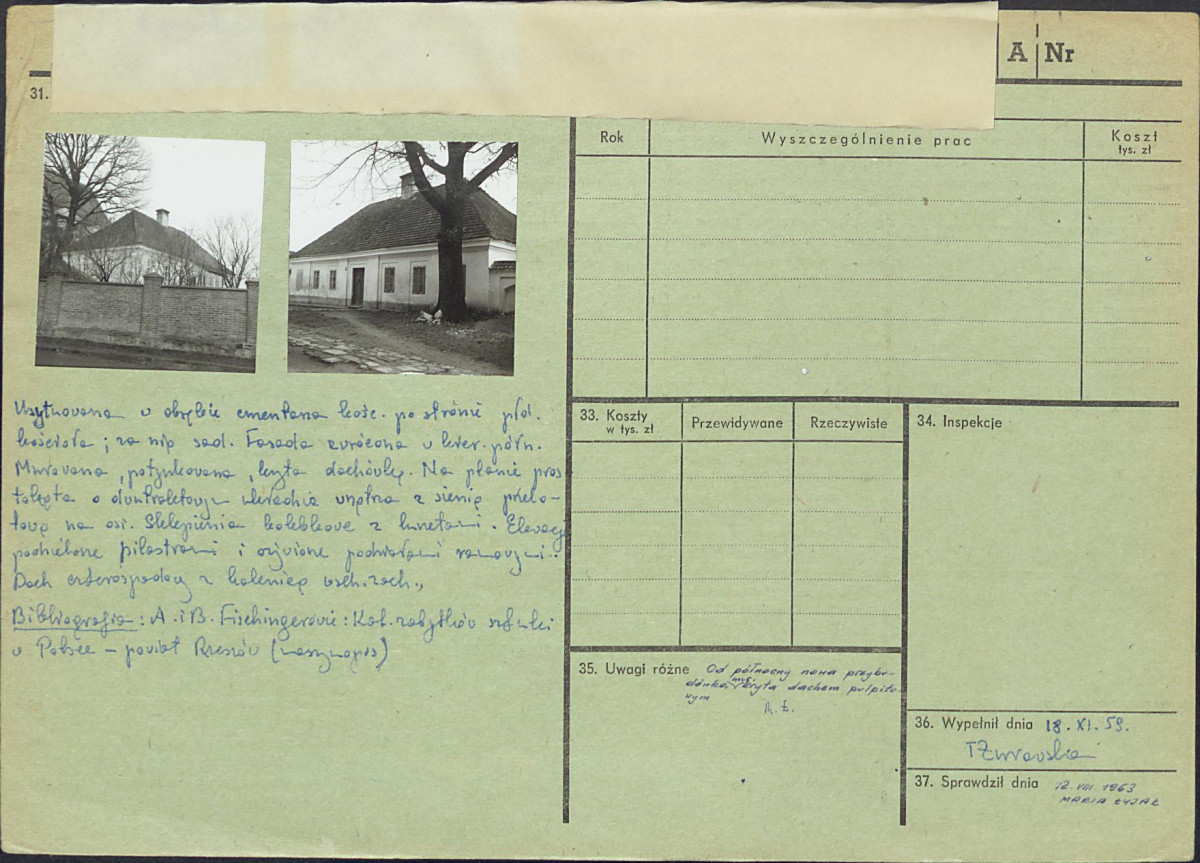 A Nr
31.
Rok
Wyszczególnienie prac
Koszt
tys. zł
Usytuowana w obrębie cmentarza kośc. po stronie płd.
kościoła; za nią sad. Fasada zwrócona w kier. półn.
Murowana, potynkowana, kryta dachówką. Na planie pros-
tokąta o dwutraktowym układzie wnętrza z sienią przelo-
tową na osi. Sklepienia kolebkowe z lunetami. Elewacje
podzielone pilastrami i ożywione podziałami ramowymi.
Dach czterospadowy z kalenicą wsch. zach.,
Bibliografia: A. i B. Fischingerowie: Kat. zabytków sztuki
w Polsce – powiat Rzeszów (maszynopis)
33. Koszty
w tys. zł
Przewidywane
Rzeczywiste
34. Inspekcje
35. Uwagi różne Od północy nowa przybu-
dówka, mur. kryta dachem pulpito-
wym
M. Ł.
36. Wypełnił dnia 18. XI. 59.
37. Sprawdził dnia 12. VIII. 1963
MARIA